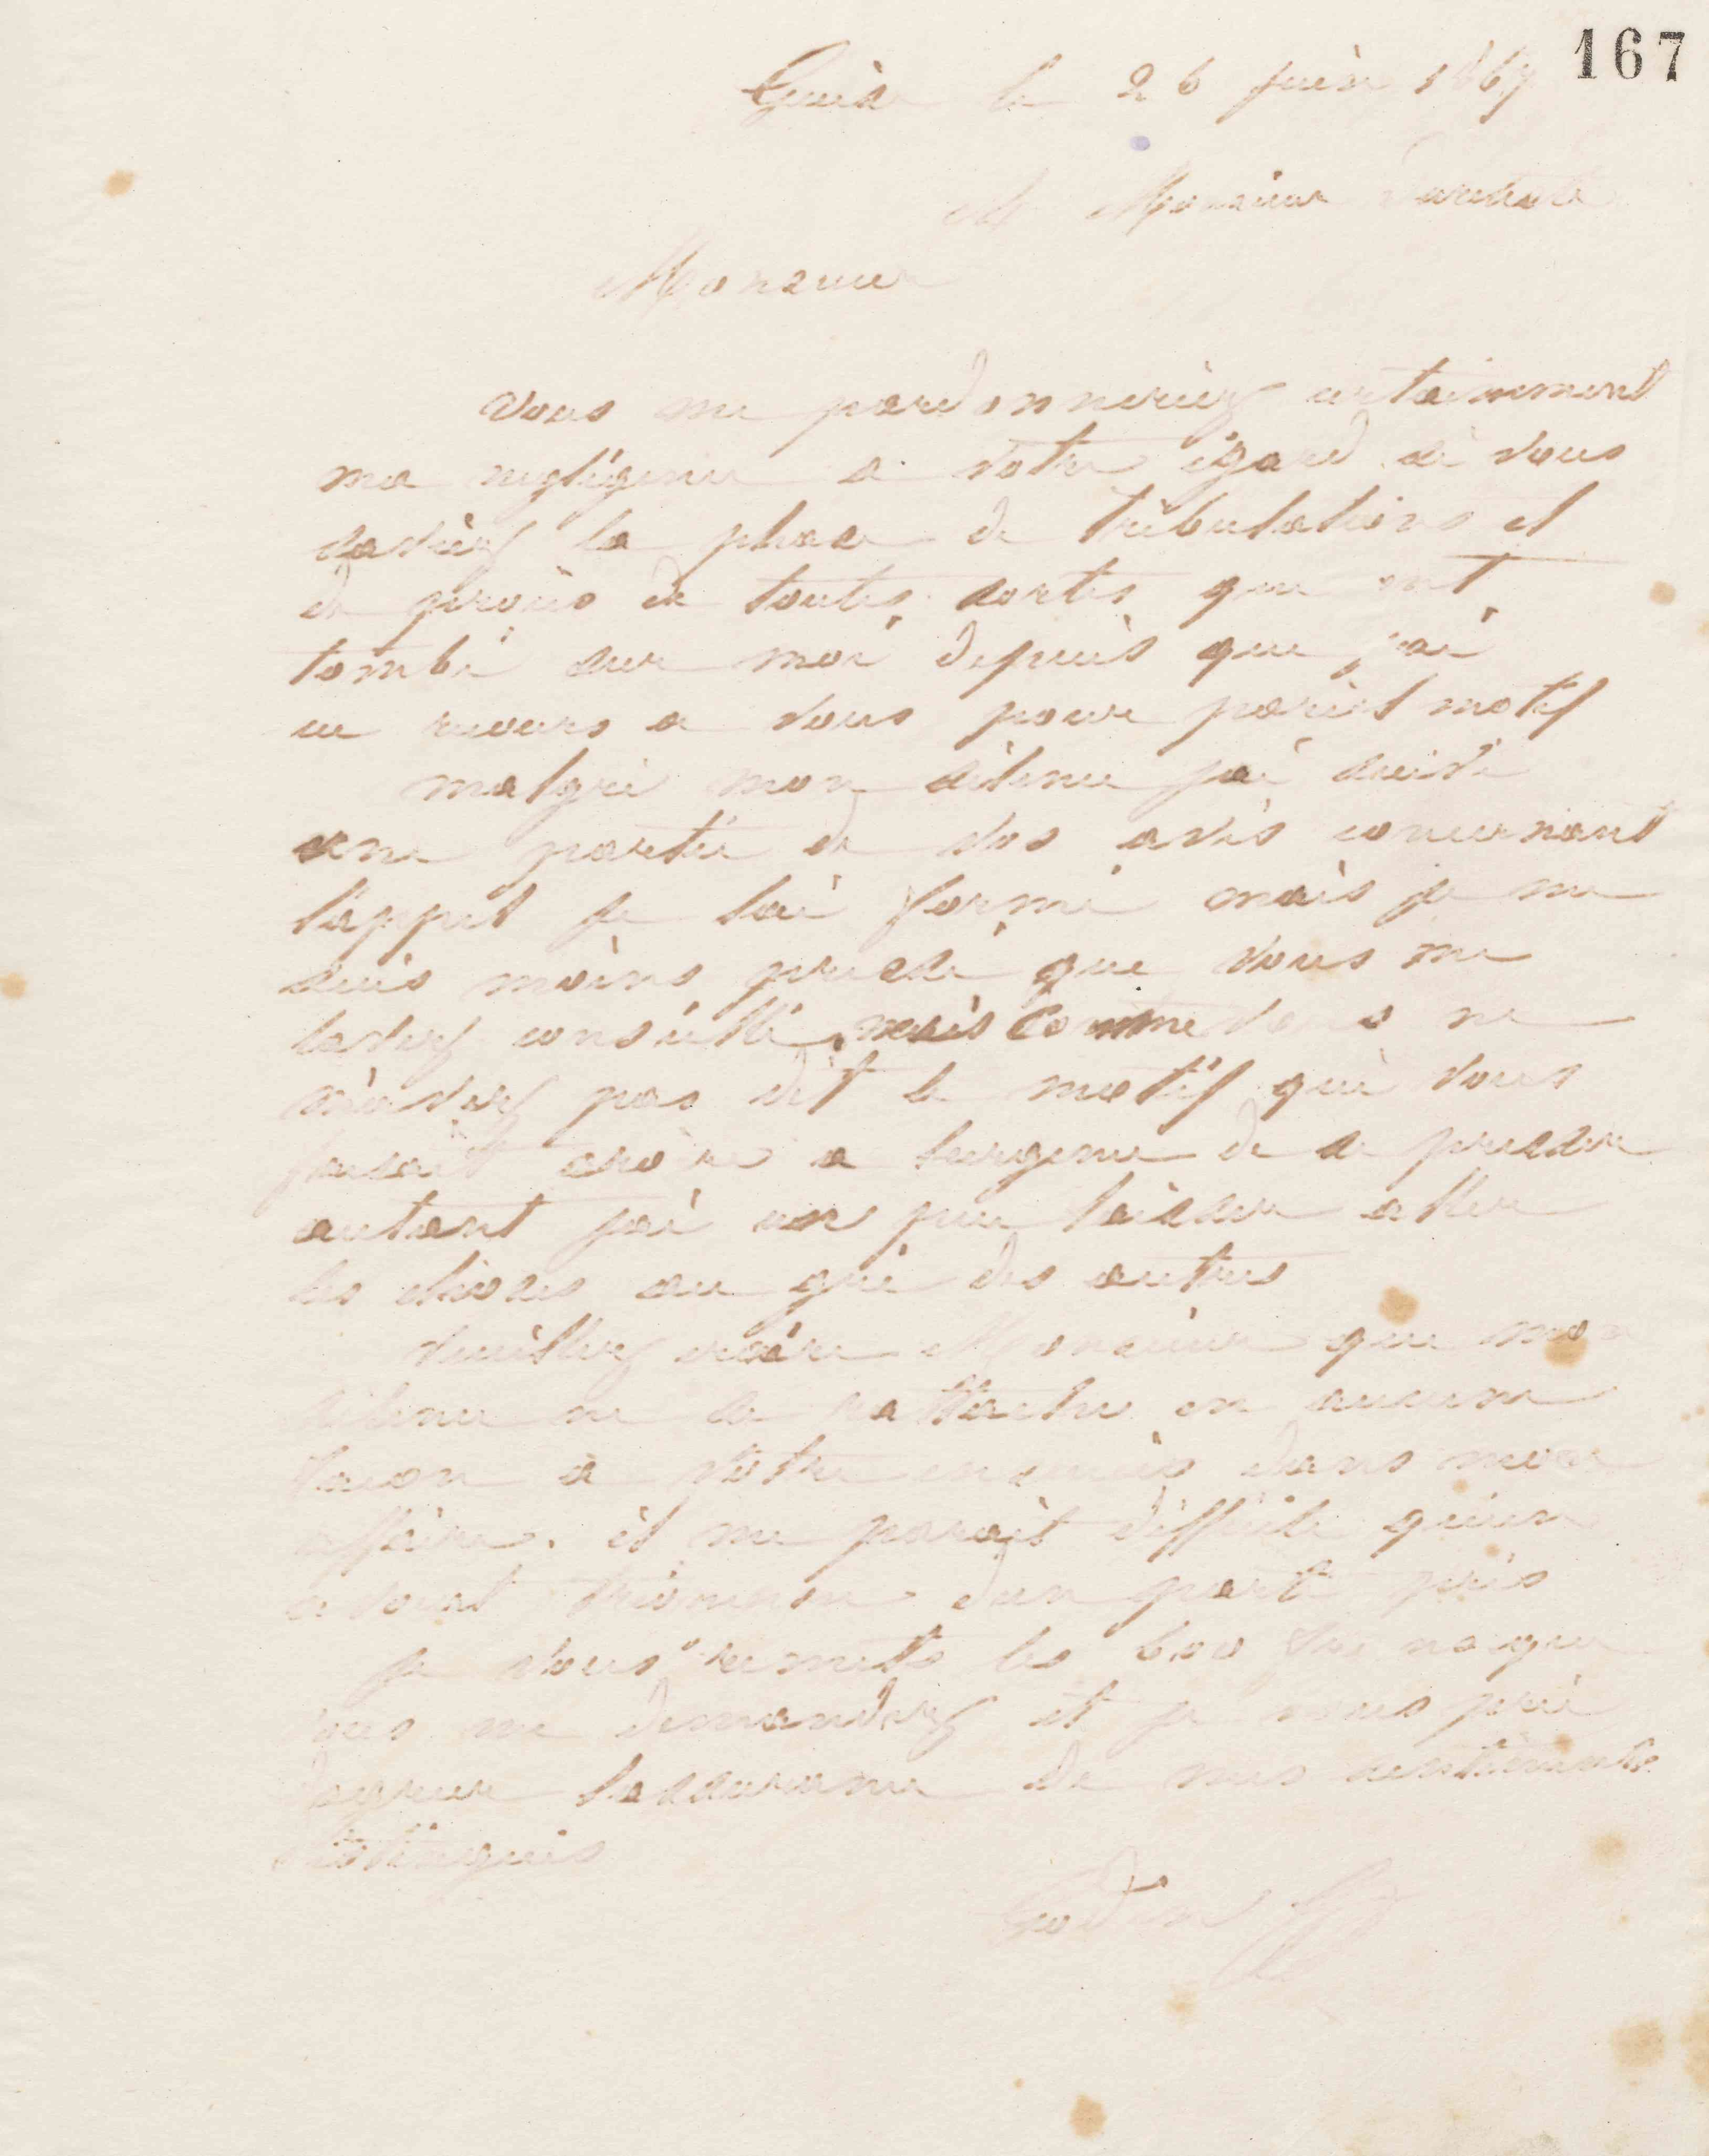 167
Guise le 26 juin 1867
A Monsieur
Monsieur
vous me pardonneriez certainement
ma negligence a votre égard si vous
saviez la phase de tribulations et
de procès de toutes sortes qui ont
tombé sur moi depuis que j'ai
eu recours a vous pour pareil motif
malgré mon silence j'ai suivi
une partie de vos avis concernant
l'appel je l'ai formé mais je me
suis moins pressé que vous me
laviez conseillé mais comme vous ne
m'aviez pas dit le motif qui vous
faisait croire a lurgence de se presser
autant j'ai un peu laisser aller
les choses au gré des autres
veuillez croire Monsieur que mon
silence ne se rattache en aucune
facon a votre dans mon
affaire. il me parait difficile qu'un
avocat triomphe dun parti pris
je vous remets les 600 que
vous me demandiez et je vous prie
dagreer lassurance de mes sentiments
distingués
Godin